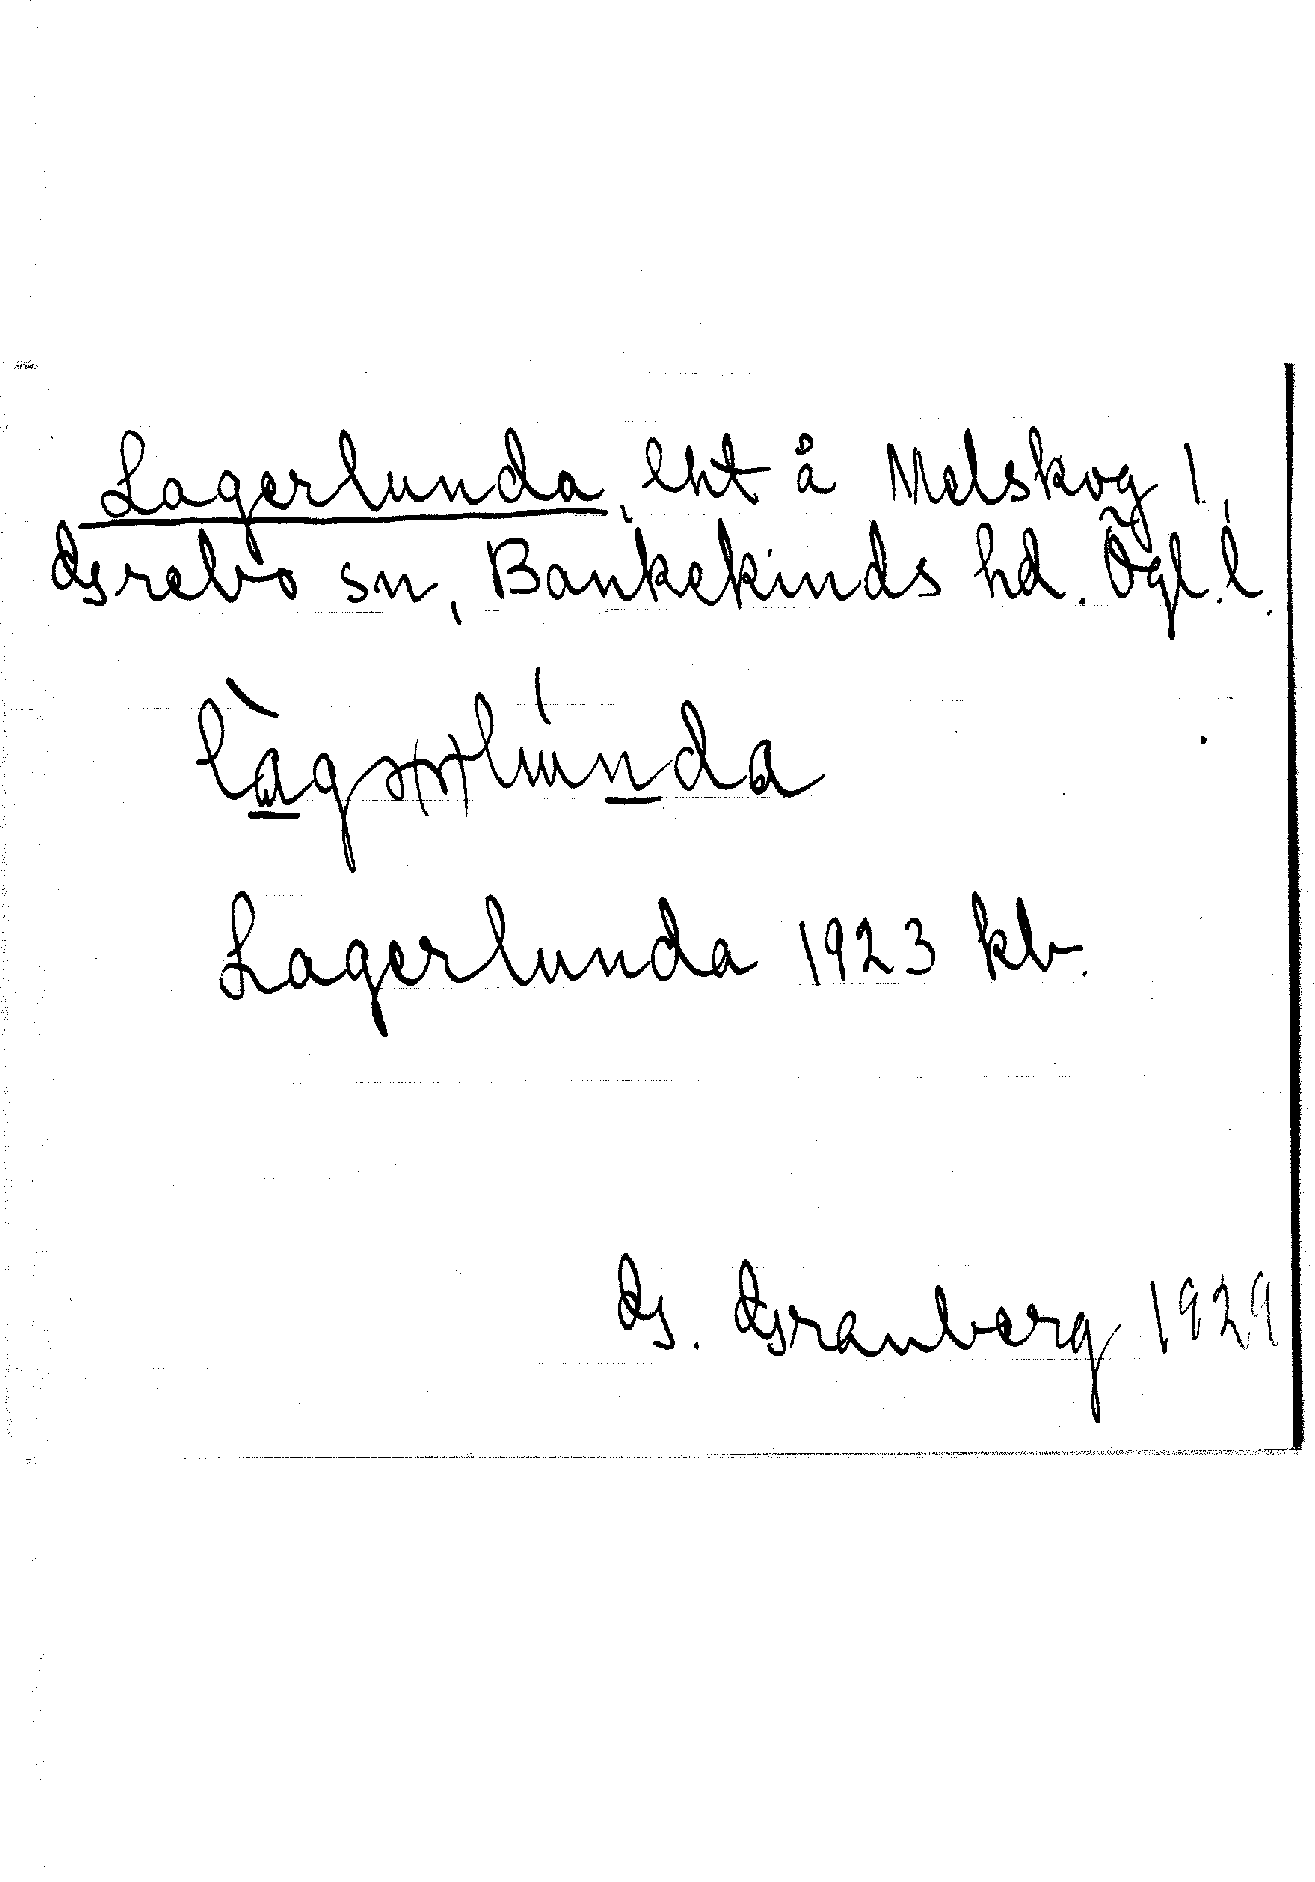 Lagerlunda, lht å Melskog 1,
Grebo sn, Bankekinds hd. Ögl. l.
Lagerlunda 1923 kb.
G. Granberg 1929